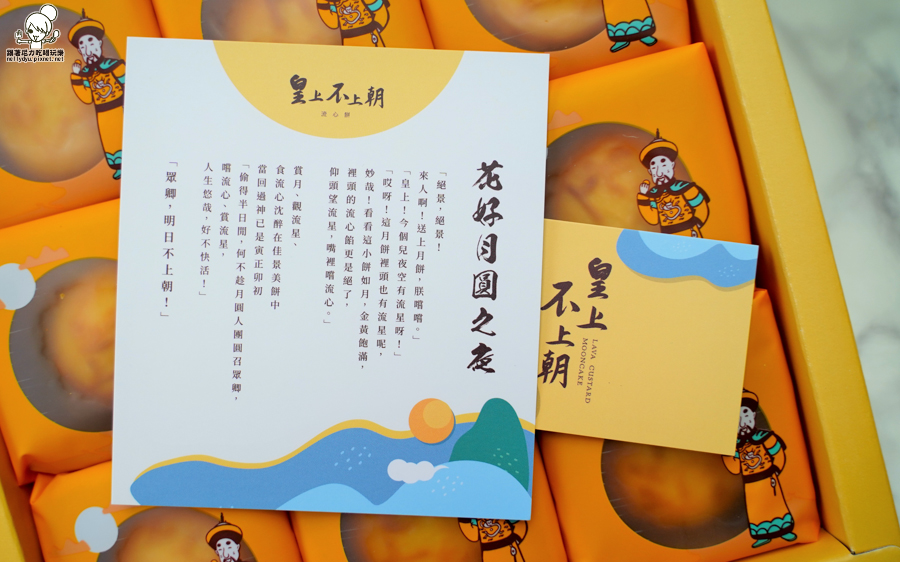 跟著尼力吃喝玩樂
nellydyu.pixnet.net
皇上不上朝
流心餅
花好月圓之夜
「絕景，絕景！
來人啊！送上月餅，朕嚐嚐。」
「皇上！今個兒夜空有流星呀！」
「哎呀！這月餅裡頭也有流星呢，
妙哉！看看這小餅如月，金黃飽滿，
裡頭的流心餡更是絕了，
仰頭望流星，嘴裡嚐流心。」
賞月、觀流星、
食流心沈醉在佳景美餅中
當回過神已是寅正卯初
「偷得半日閒，何不趁月圓人團圓召眾卿，
嚐流心、賞流星，
人生悠哉，好不快活！」
「眾卿，明日不上朝！」
皇上
不上朝
LAVA CUSTARD
MOONCAKE